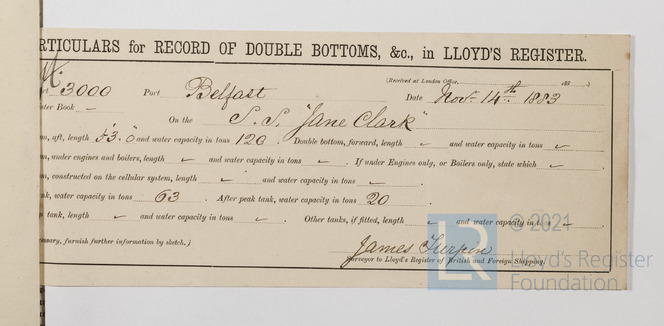 RTICULARS for RECORD OF DOUBLE BOTTOMS, &c., in LLOYD'S REGISTER.
(Received at London Office, 188 )
rt 3000 Port Belfast Date Nov. 14th 1883
ster Book –
On the S.S. "Jane Clark"
m, aft, length 53.0 and water capacity in tons 120. Double bottom, forward, length ✓ and water capacity in tons ✓
m, under engines and boilers, length ✓ and water capacity in tons ✓. If under Engines only, or Boilers only, state which ✓
m, constructed on the cellular system, length ✓ and water capacity in tons ✓
nk, water capacity in tons 63. After peak tank, water capacity in tons 20.
p tank, length ✓ and water capacity in tons ✓. Other tanks, if fitted, length ✓ and water capacity in tons ✓
essary, furnish further information by sketch.)
James Turpin
Surveyor to Lloyd's Register of British and Foreign Shipping.
LR © 2021
Lloyd's Register
Foundation